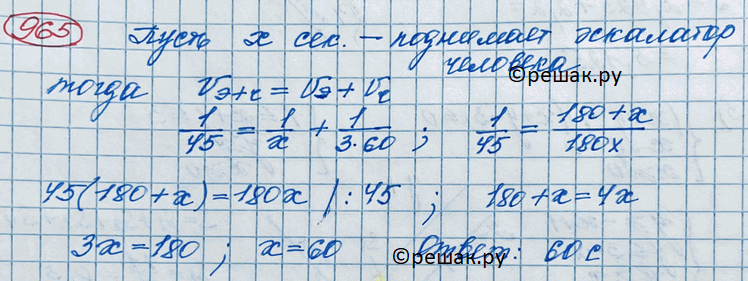 965 Пусть x сек. – поднимает эскалатор
человека
©решак.ру
тогда Vэ+ч = Vэ + Vч
1/45 = 1/x + 1/(3·60) ; 1/45 = (180+x)/180x
45(180+x)=180x /:45 ; 180+x=4x
3x=180 ; x=60 Ответ: 60 с
©решак.ру